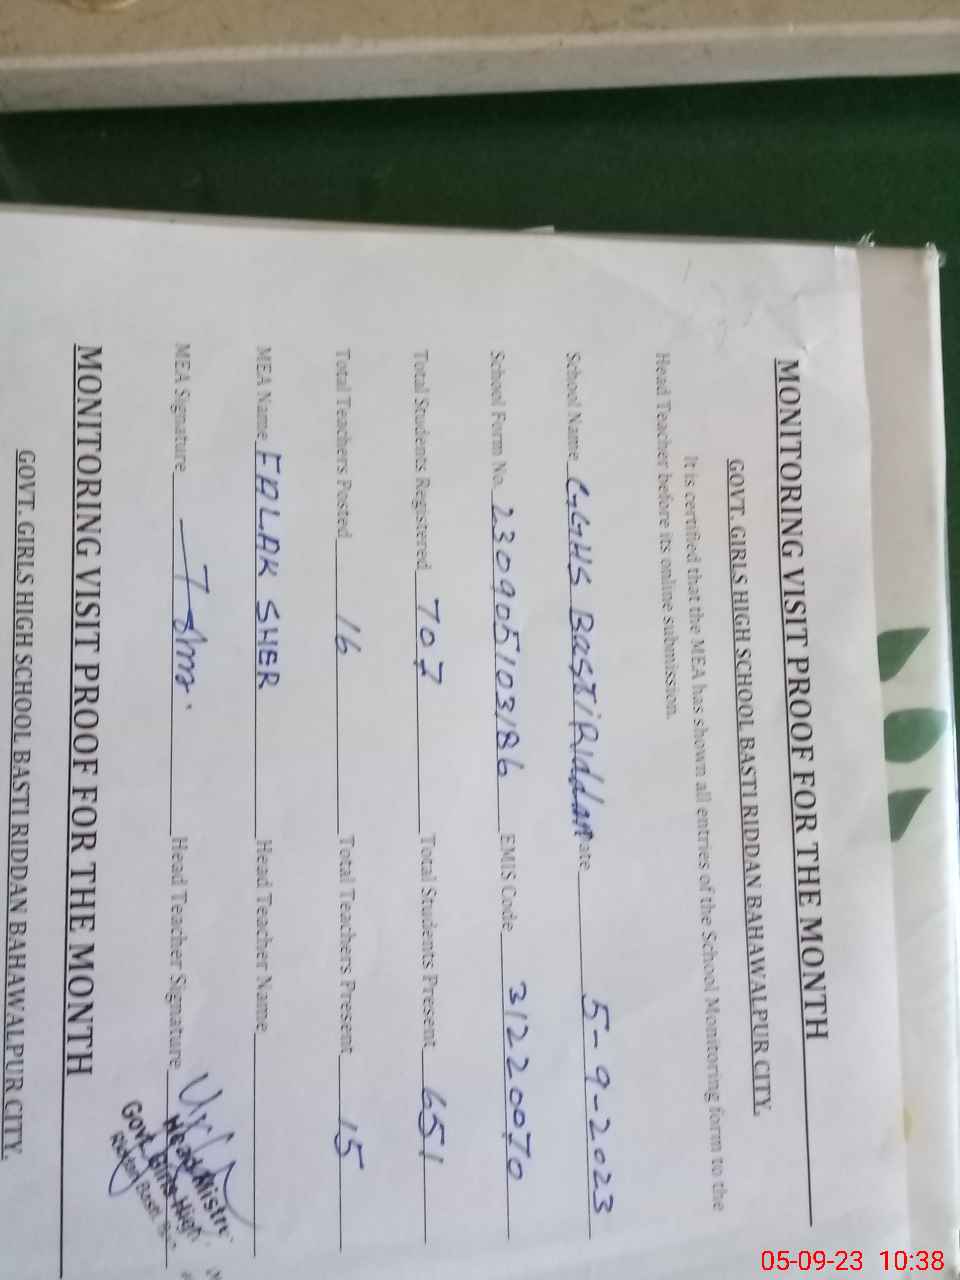 MONITORING VISIT PROOF FOR THE MONTH
GOVT. GIRLS HIGH SCHOOL BASTI RIDDAN BAHAWALPUR CITY.
It is certified that the MEA has shown all entries of the School Monitoring form to the
Head Teacher before its online submission.
School Name GGHS Basti Riddan ate 5-9-2023
School Form No. 230905103186 EMIS Code 31220070
Total Students Registered 707 Total Students Present 651
Total Teachers Posted 16 Total Teachers Present 15
MEA Name FALAK SHER Head Teacher Name
MEA Signature Head Teacher Signature
Head Mistre
Govt. Girls High
Riddan Basti
MONITORING VISIT PROOF FOR THE MONTH
GOVT. GIRLS HIGH SCHOOL BASTI RIDDAN BAHAWALPUR CITY.
05-09-23 10:38